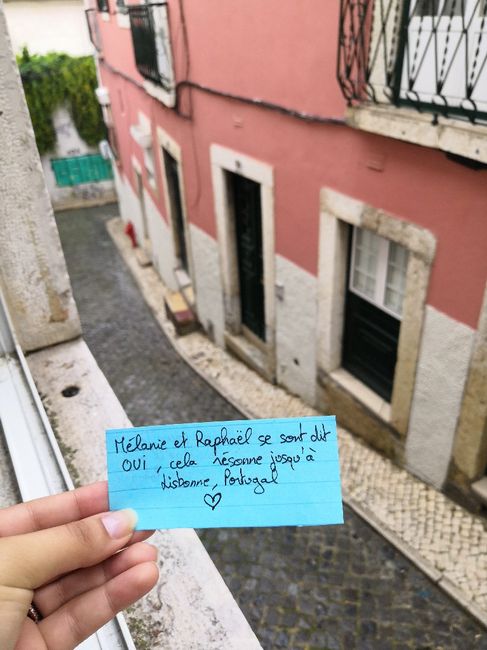 Mélanie et Raphaël se sont dit
OUI, cela résonne jusqu'à
Lisbonne, Portugal
♡